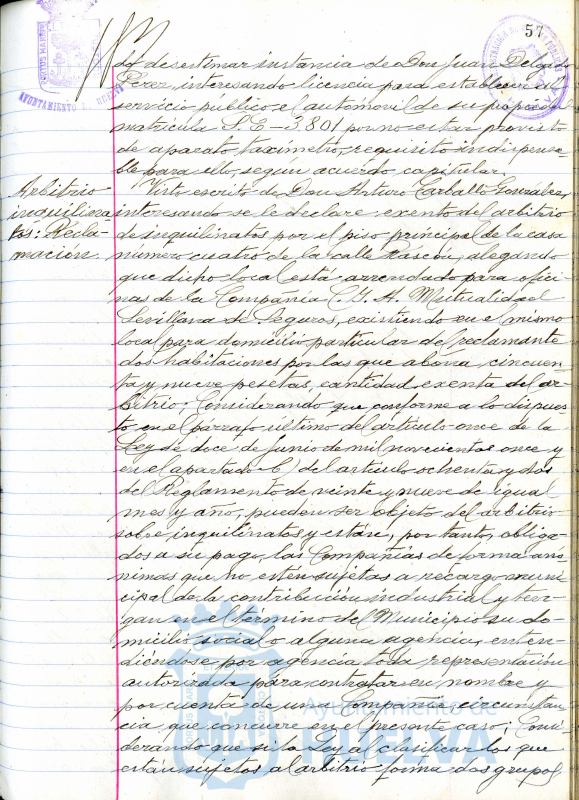 57
do desestimar instancia de Don Juan Delgado
Perez, interesando licencia para establecer al
servicio publico el automovil de su propiedad
matricula S.E-3.801 por no estar provisto
de aparato taximetro, requisito indispensa-
ble para ello, segun acuerdo capitular.
Arbitrio
inquilina
tos: Recla-
macion.
Visto escrito de Don Arturo Carballo Gonzalez,
interesando se le declare exento del arbitrio
de inquilinatos por el piso principal de la casa
número cuatro de la calle Rascon, alegando
que dicho local está arrendado para ofici-
nas de la Compañia C.Y.A. Mutualidad
Sevillana de Seguros, existiendo en el mismo
loca para domicilio particular del reclamante
dos habitaciones por las que abona cincuen-
ta y nueve pesetas, cantidad exenta del ar-
bitrio: Considerando que conforme a lo dispues
to en el párrafo último del artículo once de la
Ley de doce de Junio de mil novecientos once y
en el apartado b) del artículo ochenta y dos
del Reglamento de veinte y nueve de igual
mes y año, pueden ser objeto del arbitrio
sobre inquilinatos y están, por tanto, obliga-
dos a su pago, las Compañias de forma anó-
nimas que no estén sujetas a recargo muni
cipal de la contribución industrial y ten-
gan en el término del Municipio su do-
micilio social o alguna agencia, enten-
diéndose por agencia toda representación
autorizada para contratar en nombre y
por cuenta de una Compañia, circunstan
cia que concurre en el presente caso; Consi-
derando que si la Ley al clasificar los que
están sujetos al arbitrio forma dos grupos
AYUNTAMIENTO DE HUELVA
Ayuntamiento de
HUELVA